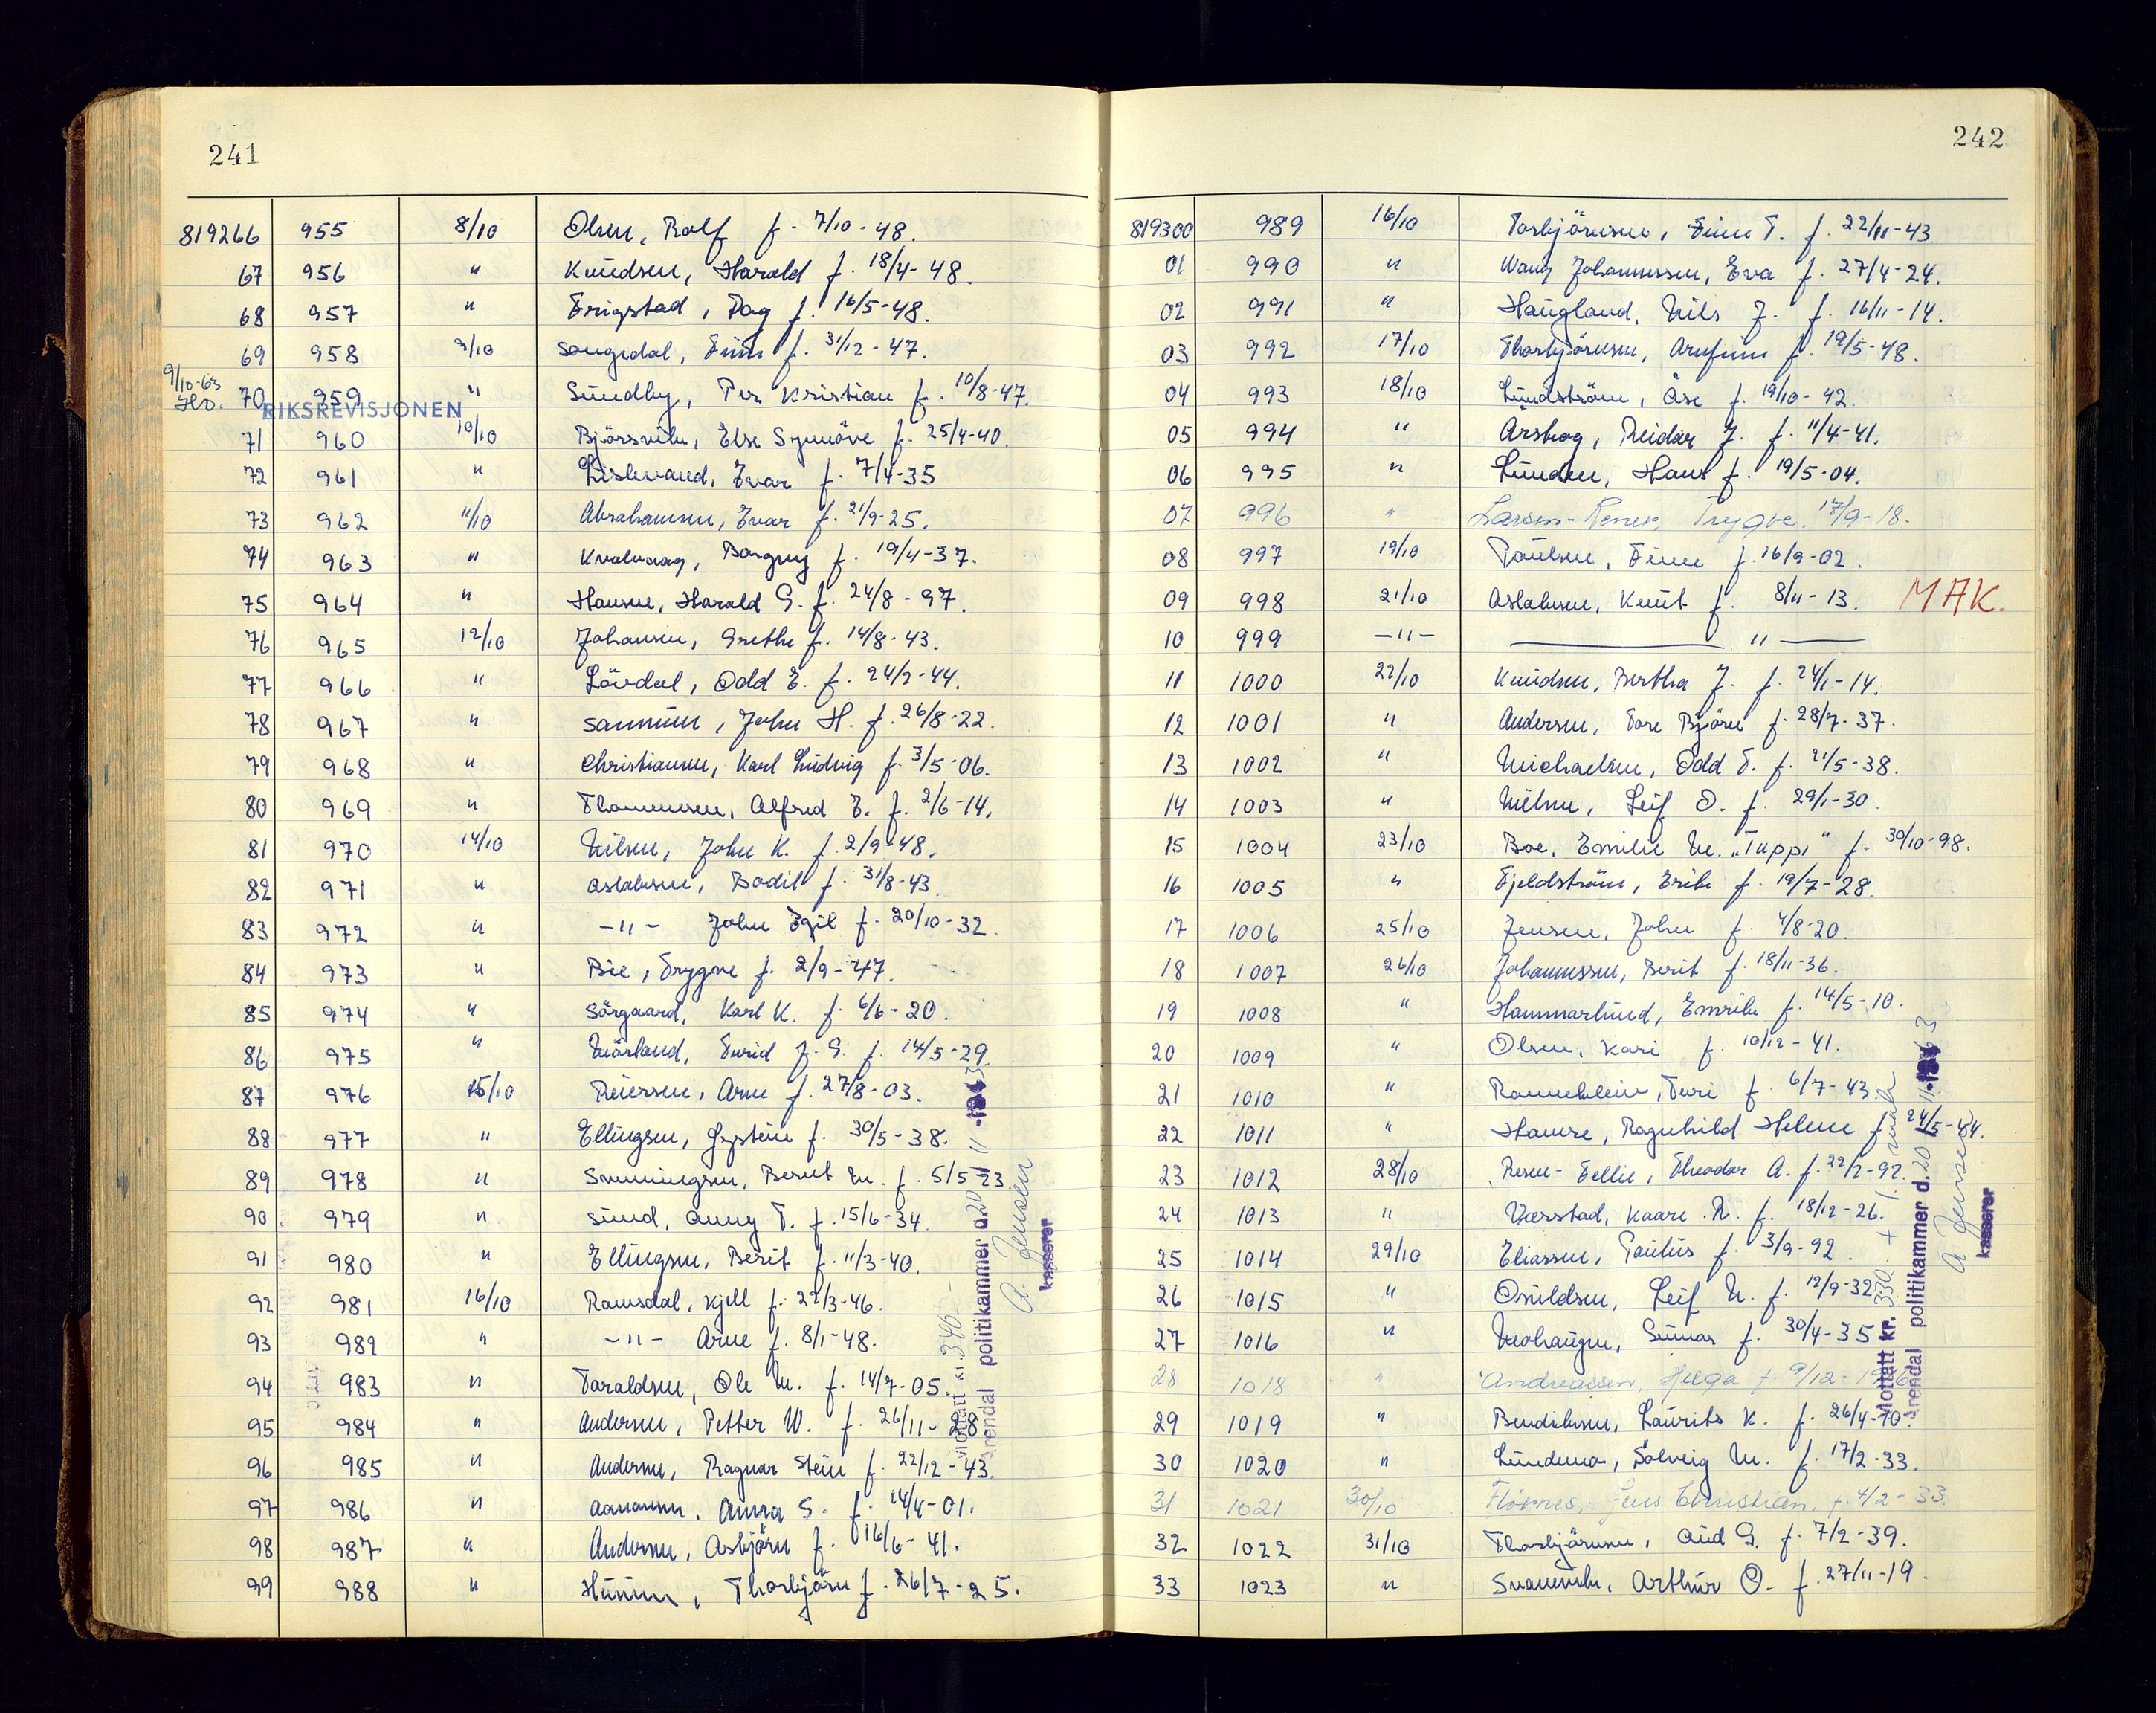 241
819266 955 8/10 Olsen, Rolf f. 7/10-48.
67 956 " Knudsen, Harald f. 18/4-48.
68 957 " Frigstad, Dag f. 16/5-48.
69 958 9/10 Songedal, Finn f. 31/12-47.
9/10-63
70 959 " Sundby, Per Kristian f. 10/8-47.
RIKSREVISJONEN
71 960 10/10 Bjorsvik, Else Synnöve f. 25/4-40.
72 961 " Lislevand, Ivar f. 7/4-35
73 962 11/10 Abrahamsen, Ivar f. 21/9-25.
74 963 " Kvalvaag, Borgny f. 19/4-37.
75 964 " Hansen, Harald G. f. 24/8-97.
76 965 12/10 Johansen, Grethe f. 14/8-43.
77 966 " Lövdal, Odd E. f. 24/2-44.
78 967 " John H. f. 26/8-22.
79 968 " Christiansen, Karl Ludvig f. 3/5-06.
80 969 " Thommesen, Alfred E. f. 2/6-14.
81 970 14/10 Nilsen, John K. f. 2/9-48.
82 971 " Aslaksen, Bodil f. 31/8-43.
83 972 " -"- John Egil f. 20/10-32.
84 973 " Bie, Trygve f. 2/9-47.
85 974 " Sörgaard, Karl K. f. 6/6-20.
86 975 " Mörland, Turid J. G. f. 14/5-29.
87 976 15/10 Reiersen, Arne f. 27/8-03.
88 977 " Ellingsen, Gystein f. 30/5-38.
89 978 " Svenningsen, Bernt M. f. 5/5-23.
90 979 " Sund, Anny T. f. 15/6-34.
91 980 " Ellingsen, Berit f. 11/3-40.
92 981 16/10 Ramsdal, Kjell f. 22/3-46.
93 982 " -"- Arne f. 8/1-48.
94 983 " Taraldsen, Ole M. f. 14/7-05.
95 984 " Andersen, Petter W. f. 26/11-28
96 985 " Andersen, Ragnar Stein f. 22/12-43.
97 986 " Aanonsen, Anna S. f. 14/4-01.
98 987 " Andersen, Asbjörn f. 16/6-41.
99 988 " Thorbjörn f. 26/7-25.
Mottatt kr. 340-
Arendal politikammer d. 20/11-1963
A. Jensen
kasserer
242
819300 989 16/10 Torbjörnsen, Finn T. f. 22/11-43
01 990 " Wang Johannessen, Eva f. 27/4-24.
02 991 " Haugland, Nils J. f. 16/11-14.
03 992 17/10 Thorbjörnsen, Arnfinn f. 19/5-48.
04 993 18/10 Lundström, Åse f. 19/10-42.
05 994 " Årskog, Reidar J. f. 11/4-41.
06 995 " Lunden, Hans f. 19/5-04.
07 996 " Larsen- Trygve. 17/9-18.
08 997 19/10 Paulsen, Finn f. 16/9-02.
09 998 21/10 Aslaksen, Knut f. 8/11-13. MAK.
10 999 -"- "
11 1000 22/10 Knudsen, Bertha J. f. 24/1-14.
12 1001 " Andersen, Tore Björn f. 28/7-37.
13 1002 " Michaelsen, Odd T. f. 21/5-38.
14 1003 " Nilsen, Leif O. f. 29/1-30.
15 1004 23/10 Boe, Emilie M. "Tuppi" f. 30/10-98.
16 1005 " Fjeldström, Erik f. 19/7-28.
17 1006 25/10 Jensen, John f. 4/8-20.
18 1007 26/10 Johannessen, Berit f. 18/11-36.
19 1008 " Hammarlund, Emrik f. 14/5-10.
20 1009 " Olsen, Kari f. 10/12-41.
21 1010 " Rameklein, Turi f. 6/7-43
22 1011 " Hamre, Ragnhild Helene f. 24/5-44.
23 1012 28/10 Resen-Fellie, Theodor A. f. 22/2-92.
24 1013 " Værstad, Kaare R. f. 18/12-26.
25 1014 29/10 Eliassen, Paulus f. 3/9-92.
26 1015 " Osuldsen, Leif N. f. 12/9-32
27 1016 " Mohaugen, Gunnar f. 30/4-35
28 1018 " Andreassen, Helga f. 9/12-
29 1019 " Bendiksen, Laurits K. f. 26/4-10.
30 1020 " Lundemo, Solveig M. f. 17/2-33.
31 1021 30/10 Jens Christian, f. 4/2-33.
32 1022 31/10 Thorbjörnsen, Aud G. f. 7/2-39.
33 1023 " Svanevik, Arthur O. f. 27/11-19.
Mottatt kr. 330.- + 1. mak
Arendal politikammer d. 20/11-1963
A Jensen
kasserer